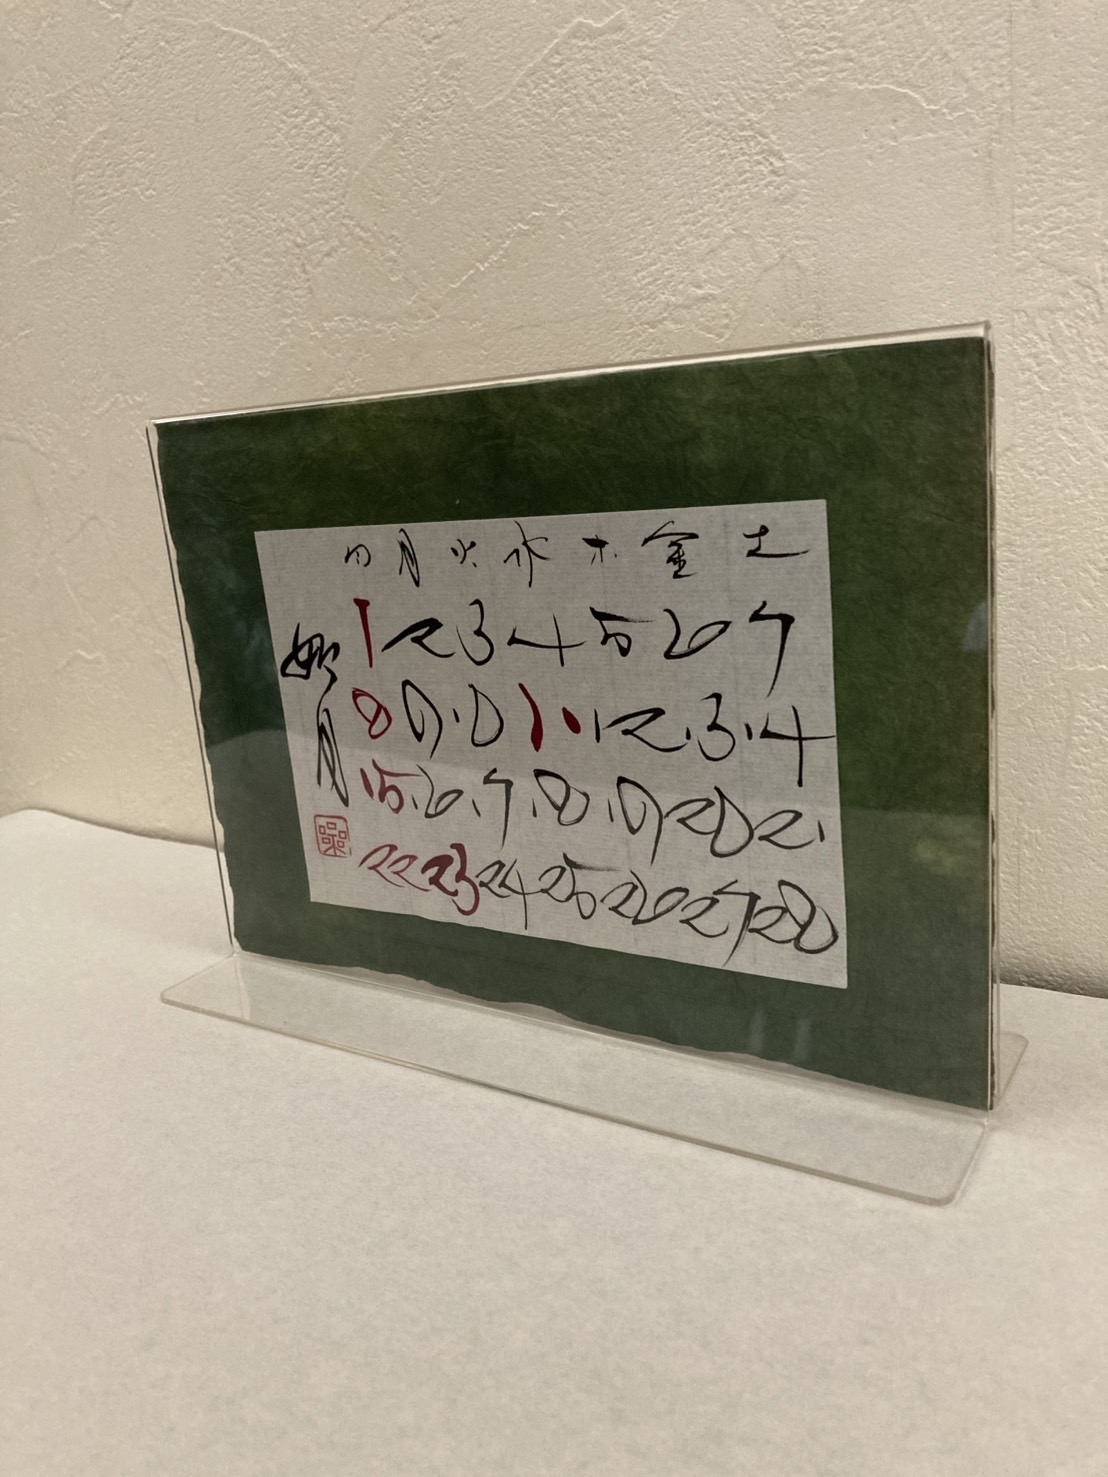 日 月 火 水 木 金 土
1 2 3 4 5 6 7
8 9 10 11 12 13 14
15 16 17 18 19 20 21
22 23 24 25 26 27 28
如月